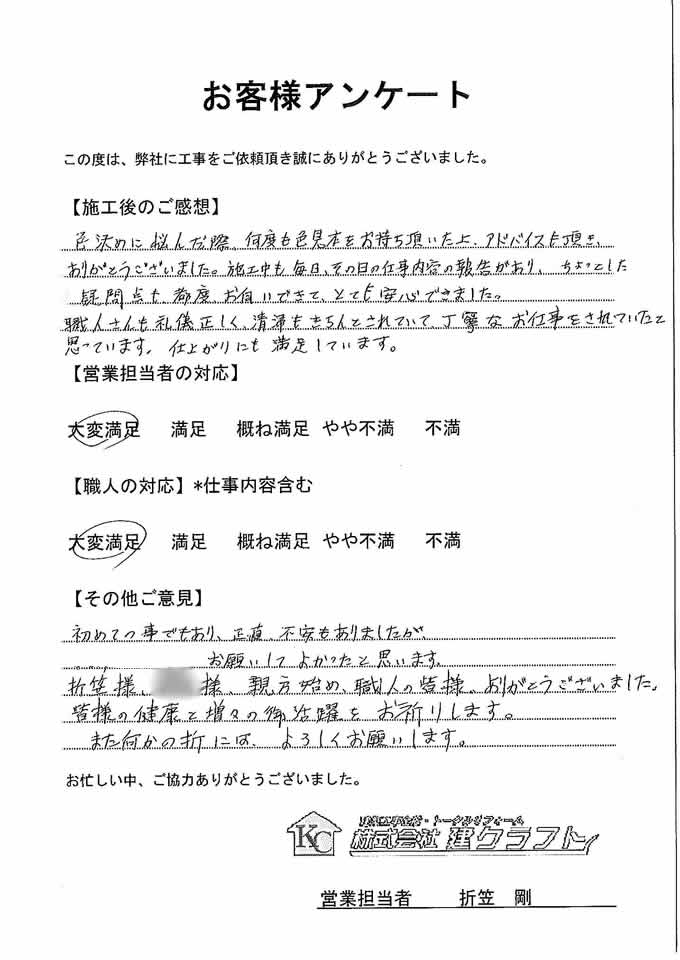 お客様アンケート
この度は、弊社に工事をご依頼頂き誠にありがとうございました。
【施工後のご感想】
色決めに悩んだ際、何度も色見本をお持ち頂いた上、アドバイスも頂き、
ありがとうございました。施工中も毎日、その日の仕事内容の報告があり、ちょっとした
疑問点も、都度お伺いできて、とても安心できました。
職人さんも礼儀正しく、清掃もきちんとされていて丁寧なお仕事をされていたと
思っています。仕上がりにも満足しています。
【営業担当者の対応】
大変満足 満足 概ね満足 やや不満 不満
【職人の対応】*仕事内容含む
大変満足 満足 概ね満足 やや不満 不満
【その他ご意見】
初めての事でもあり、正直、不安もありましたが、
お願いしてよかったと思います。
折笠様、 様、親方始め、職人の皆様、ありがとうございました。
皆様の健康と増々の御活躍をお祈りします。
また何かの折には、よろしくお願いします。
お忙しい中、ご協力ありがとうございました。
KC
・トータルリフォーム
株式会社 建クラフト
営業担当者 折笠 剛